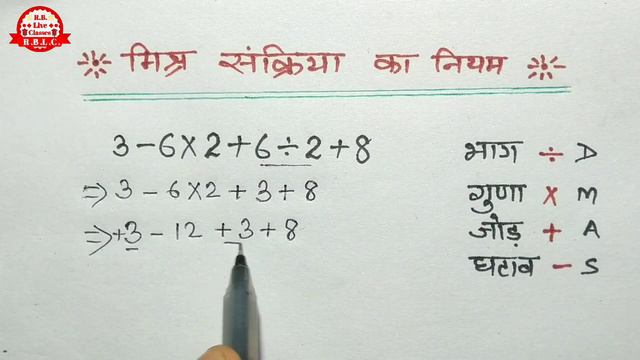 R.B.
Live
Classes
R.B.L.C.
मिश्र संक्रिया का नियम
3-6×2+6÷2+8
⇒ 3 - 6×2 + 3 + 8
⇒ +3 - 12 + 3 + 8
भाग ÷ D
गुणा × M
जोड़ + A
घटाव - S